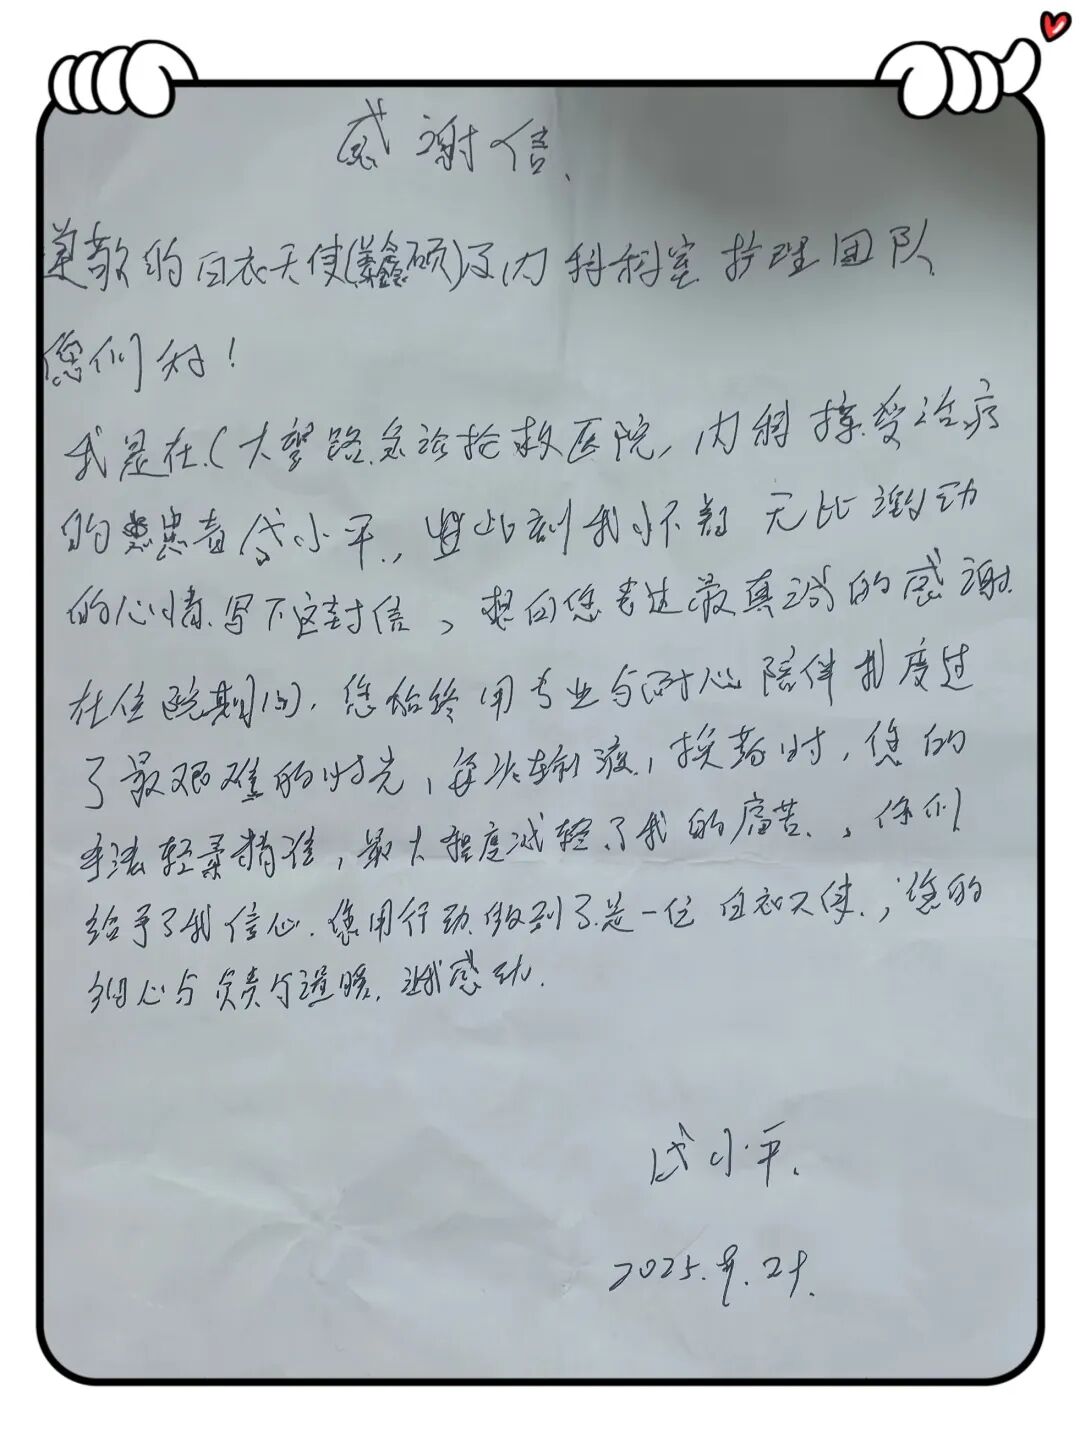 感谢信.
尊敬的白衣天使(鑫硕)及内科科室护理团队
您们好!
我是在.(大望路急诊抢救医院,内科接受治疗
的患者 小平.,此刻我怀着无比激动
的心情.写下这封信,想向您表达最真诚的感谢.
在住院期间.您始终用专业与耐心陪伴我度过
了最艰难的时光,每次输液,换药时,您的
手法轻柔精准,最大程度减轻了我的痛苦.,你们
给予了我信心.您用行动.做到了是一位白衣天使.;您的
细心与负责与温暖.让我感动.
小平.
2025.9.29.